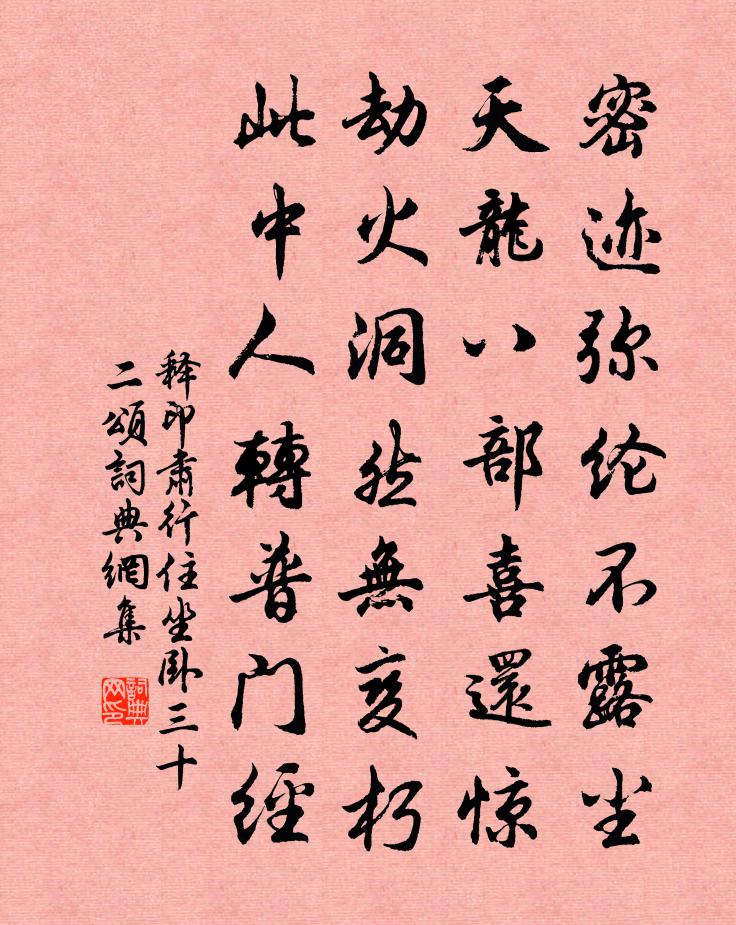 密迹弥纶不露尘
天龍八部喜還惊
劫火洞然無变朽
此中人轉普门經
释印肅行住坐卧三十
二頌詞典網集
詞典网印